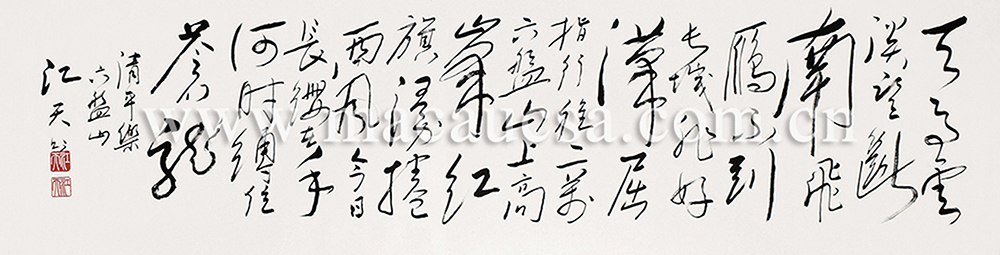 天高云
淡望断
南飞
雁不到
长城非好
汉屈
指行程二万
六盘山上高
峰红
旗漫捲
西风今日
长缨在手
何时缚住
苍龙
清平乐
六盘山
江天书
www.macauosa.com.cn